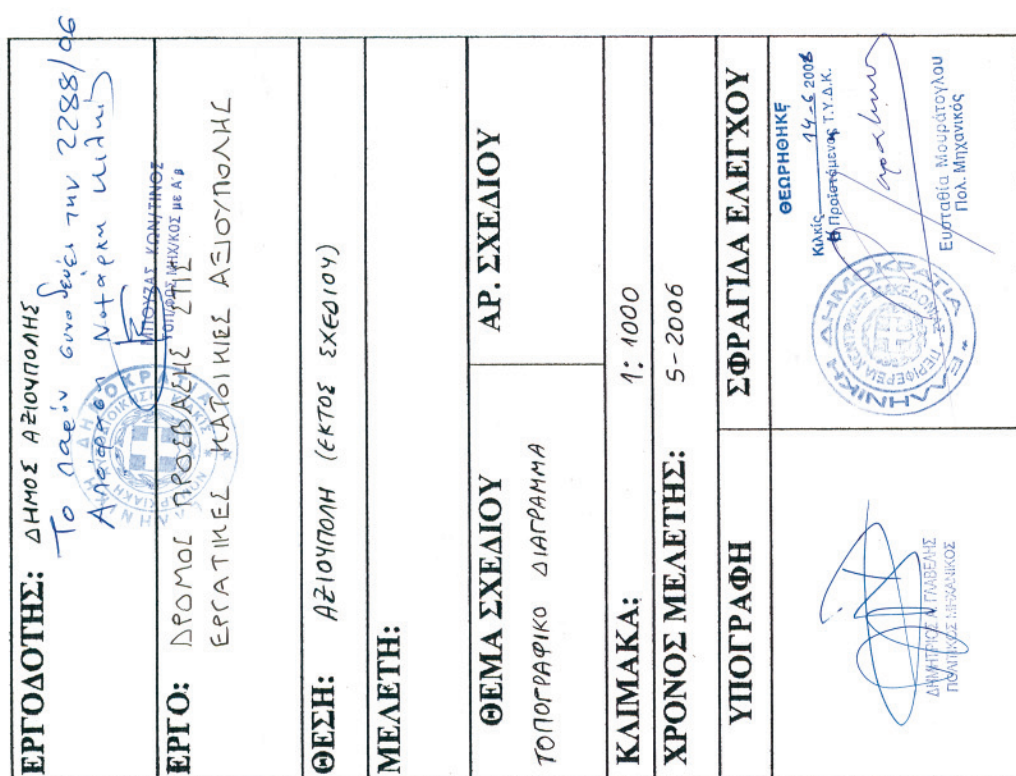 ΕΡΓΟΔΟΤΗΣ: ΔΗΜΟΣ ΑΞΙΟΥΠΟΛΗΣ
Το παρόν συνοδεύει την 2288/06
Απόφαση Νομάρχη Κιλκίς
ΜΠΟΥΖΑΣ ΚΩΝ/ΤΙΝΟΣ
ΤΟΠ/ΦΟΣ ΜΗΧ/ΚΟΣ με Α'β
ΕΡΓΟ: ΔΡΟΜΟΣ ΠΡΟΣΒΑΣΗΣ ΣΤΙΣ
ΕΡΓΑΤΙΚΕΣ ΚΑΤΟΙΚΙΕΣ ΑΞΙΟΥΠΟΛΗΣ
ΘΕΣΗ: ΑΞΙΟΥΠΟΛΗ (ΕΚΤΟΣ ΣΧΕΔΙΟΥ)
ΜΕΛΕΤΗ:
ΘΕΜΑ ΣΧΕΔΙΟΥ
ΑΡ. ΣΧΕΔΙΟΥ
ΤΟΠΟΓΡΑΦΙΚΟ ΔΙΑΓΡΑΜΜΑ
ΚΛΙΜΑΚΑ: 1:1000
ΧΡΟΝΟΣ ΜΕΛΕΤΗΣ: 5-2006
ΥΠΟΓΡΑΦΗ
ΣΦΡΑΓΙΔΑ ΕΛΕΓΧΟΥ
ΔΗΜΗΤΡΙΟΣ Ν. ΓΛΑΒΕΛΗΣ
ΠΟΛΙΤΙΚΟΣ ΜΗΧΑΝΙΚΟΣ
ΘΕΩΡΗΘΗΚΕ
Κιλκίς 14-6 2006
Η Προϊστάμενος Τ.Υ.Δ.Κ.
Ευσταθία Μουράτογλου
Πολ. Μηχανικός
ΕΛΛΗΝΙΚΗ ΔΗΜΟΚΡΑΤΙΑ
ΠΕΡΙΦΕΡΕΙΑ ΚΕΝΤΡΙΚΗΣ ΜΑΚΕΔΟΝΙΑΣ